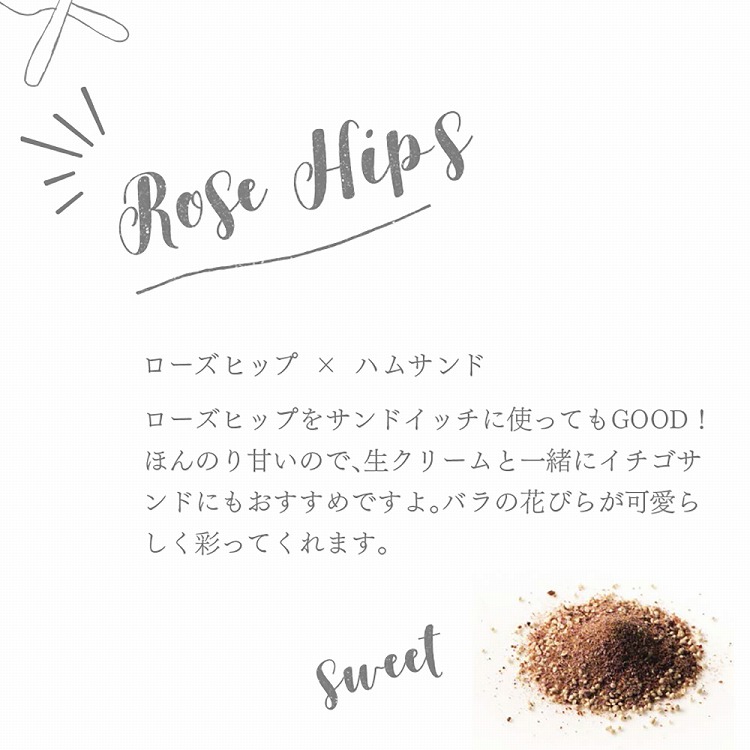 Rose Hips
ローズヒップ × ハムサンド
ローズヒップをサンドイッチに使ってもGOOD！
ほんのり甘いので、生クリームと一緒にイチゴサ
ンドにもおすすめですよ。バラの花びらが可愛ら
しく彩ってくれます。
sweet